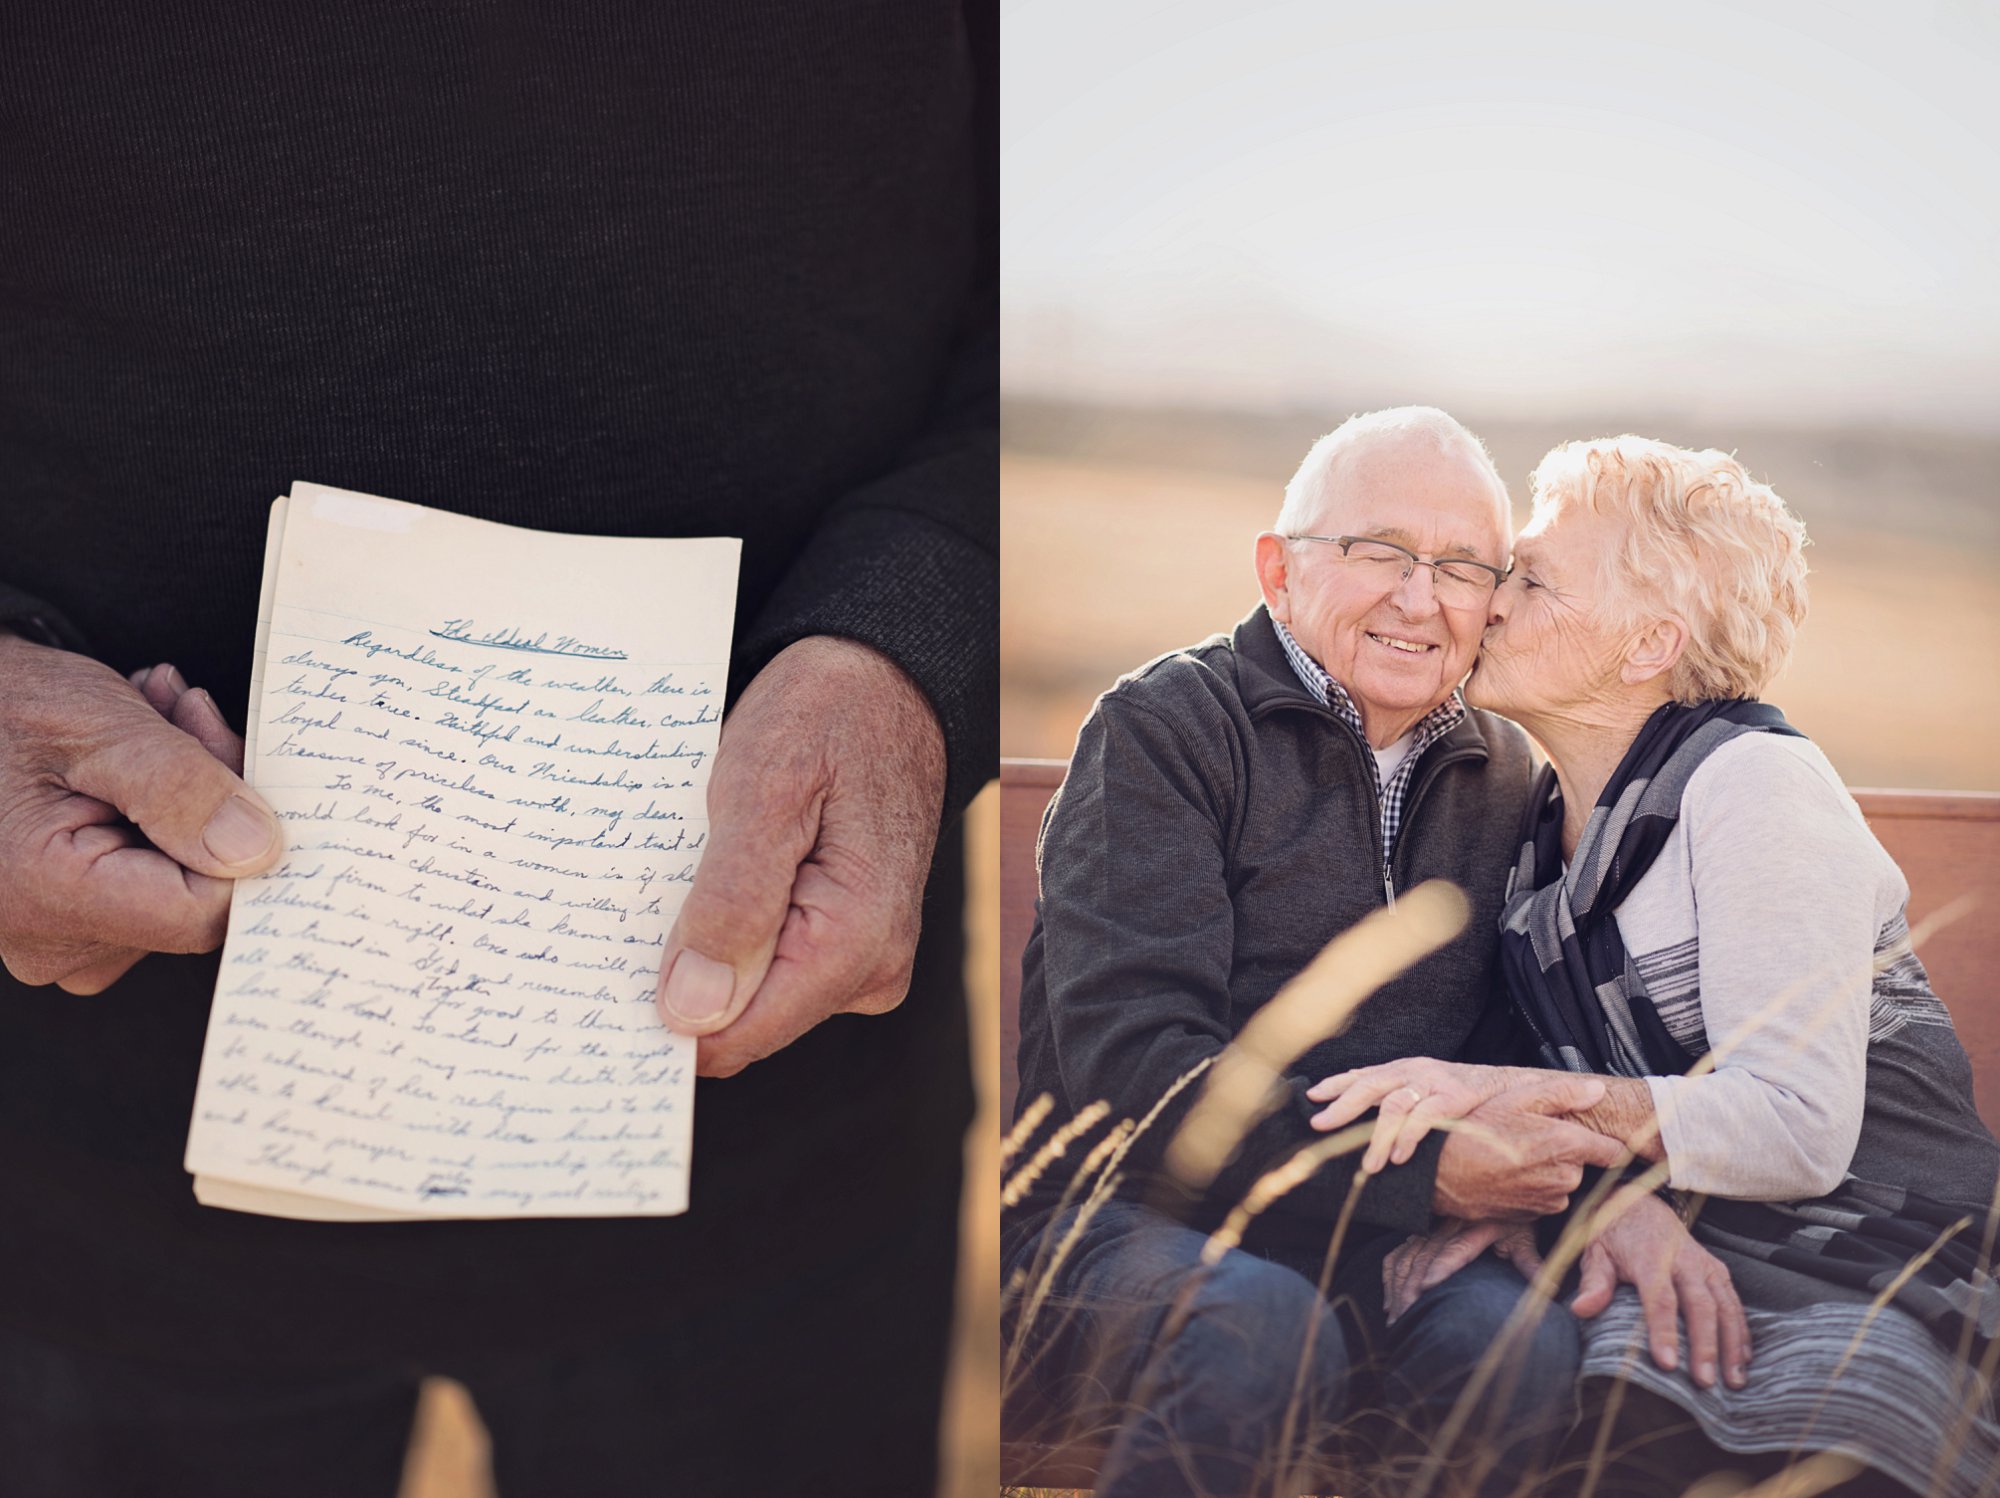 The eldeal Women
Regardless of the weather, there is
always you, Steadfast as leather, constant
tender true. Faithful and understanding
loyal and since. Our Friendship is a
treasure of priceless worth, my dear.
To me, the most important trait I
would look for in a women is if she
a sincere christian and willing to
stand firm to what she knows and
believes is right. One who will
her trust in God and remember
all things work together for good to those
love the Lord. To stand for the right
even though it may mean death. Not to
be ashamed of her religion and to be
able to kneel with her husband
and have prayer and worship together
Though some may not realize